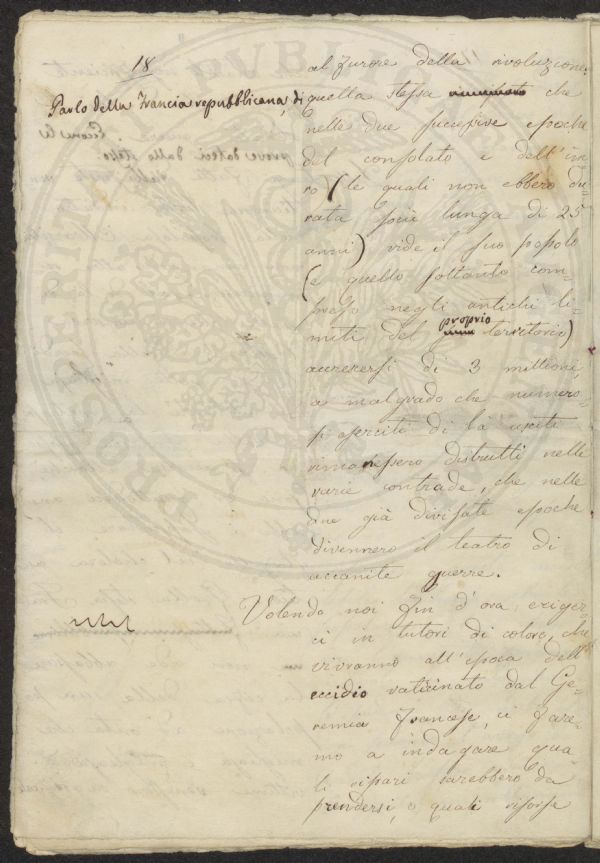 18
al furore della rivoluzione
Parlo della Francia repubblicana, di quella stessa che
nelle due successive epoche
del consolato e dell'im-
ro (le quali non ebbero du-
rata più lunga di 25
anni) vide il suo popolo
(e quello soltanto com-
preso negli antichi li-
miti del proprio territorio)
accrescersi di 3 millioni,
a malgrado che numero-
si eserciti di là usciti
rimanessero distrutti nelle
varie contrade, che nelle
due già divisate epoche
divennero il teatro di
accanite guerre.
Volendo noi fin d'ora eriger-
ci in tutori di coloro, che
vivranno all'epoca dell'
eccidio vaticinato dal Ge-
remia francese, ci fare-
mo a indagare qua-
li ripari sarebbero da
prendersi, o quali risorse